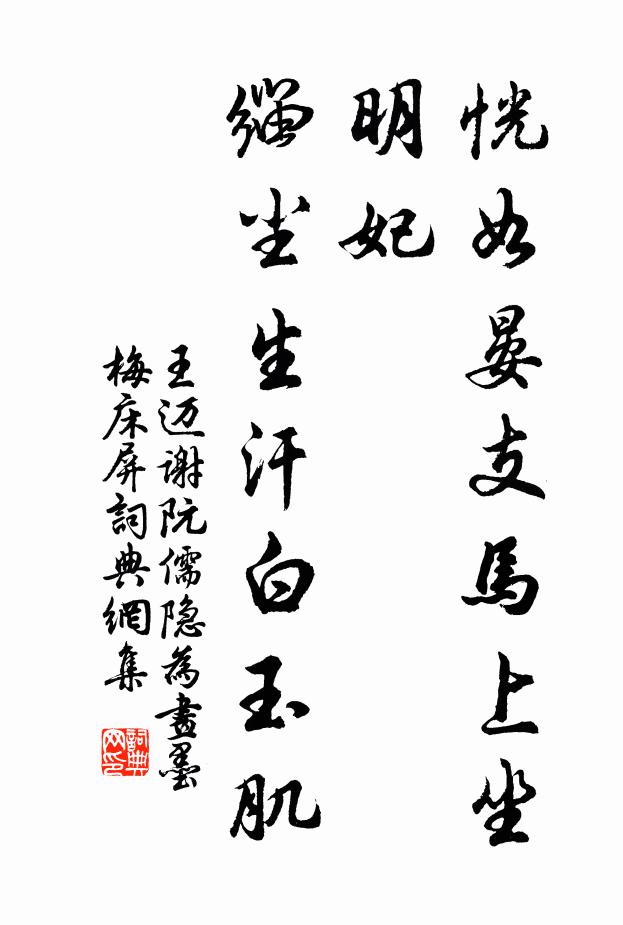 恍如晏支馬上坐
明妃
緇尘生汗白玉肌
王迈谢阮儒隐為畫墨
梅床屏詞典網集
詞典
网印